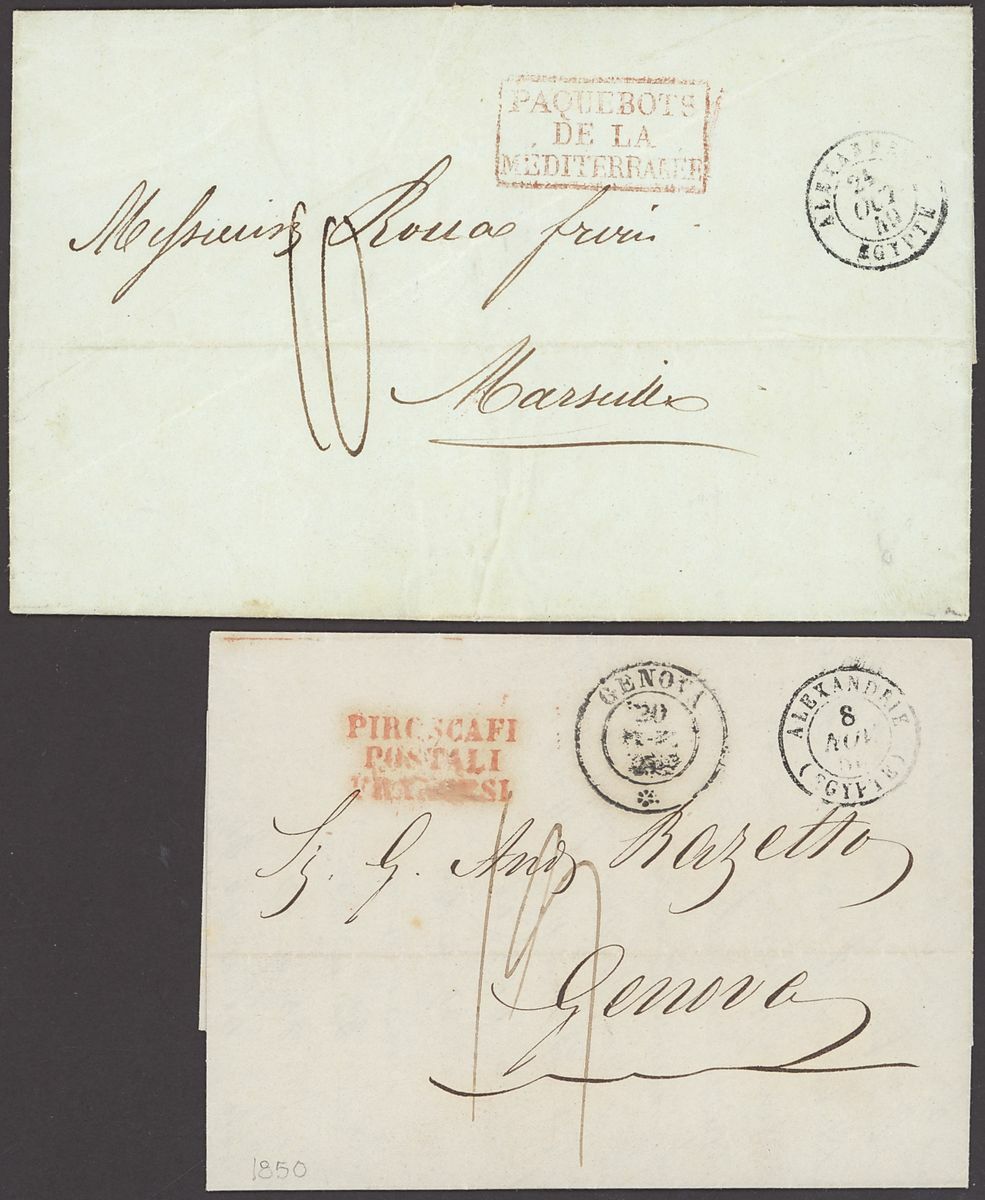 PAQUEBOTS
DE LA
MÉDITERRANÉE
ALEXANDRIE
24
OCT
49
EGYPTE
Messieurs Roux frères
10
Marseille
PIROSCAFI
POSTALI
FRANCESI
GENOVA
20
ALEXANDRIE
8
NOV
50
(EGYPTE)
Sig. G. And. Razetto
Genova
1850